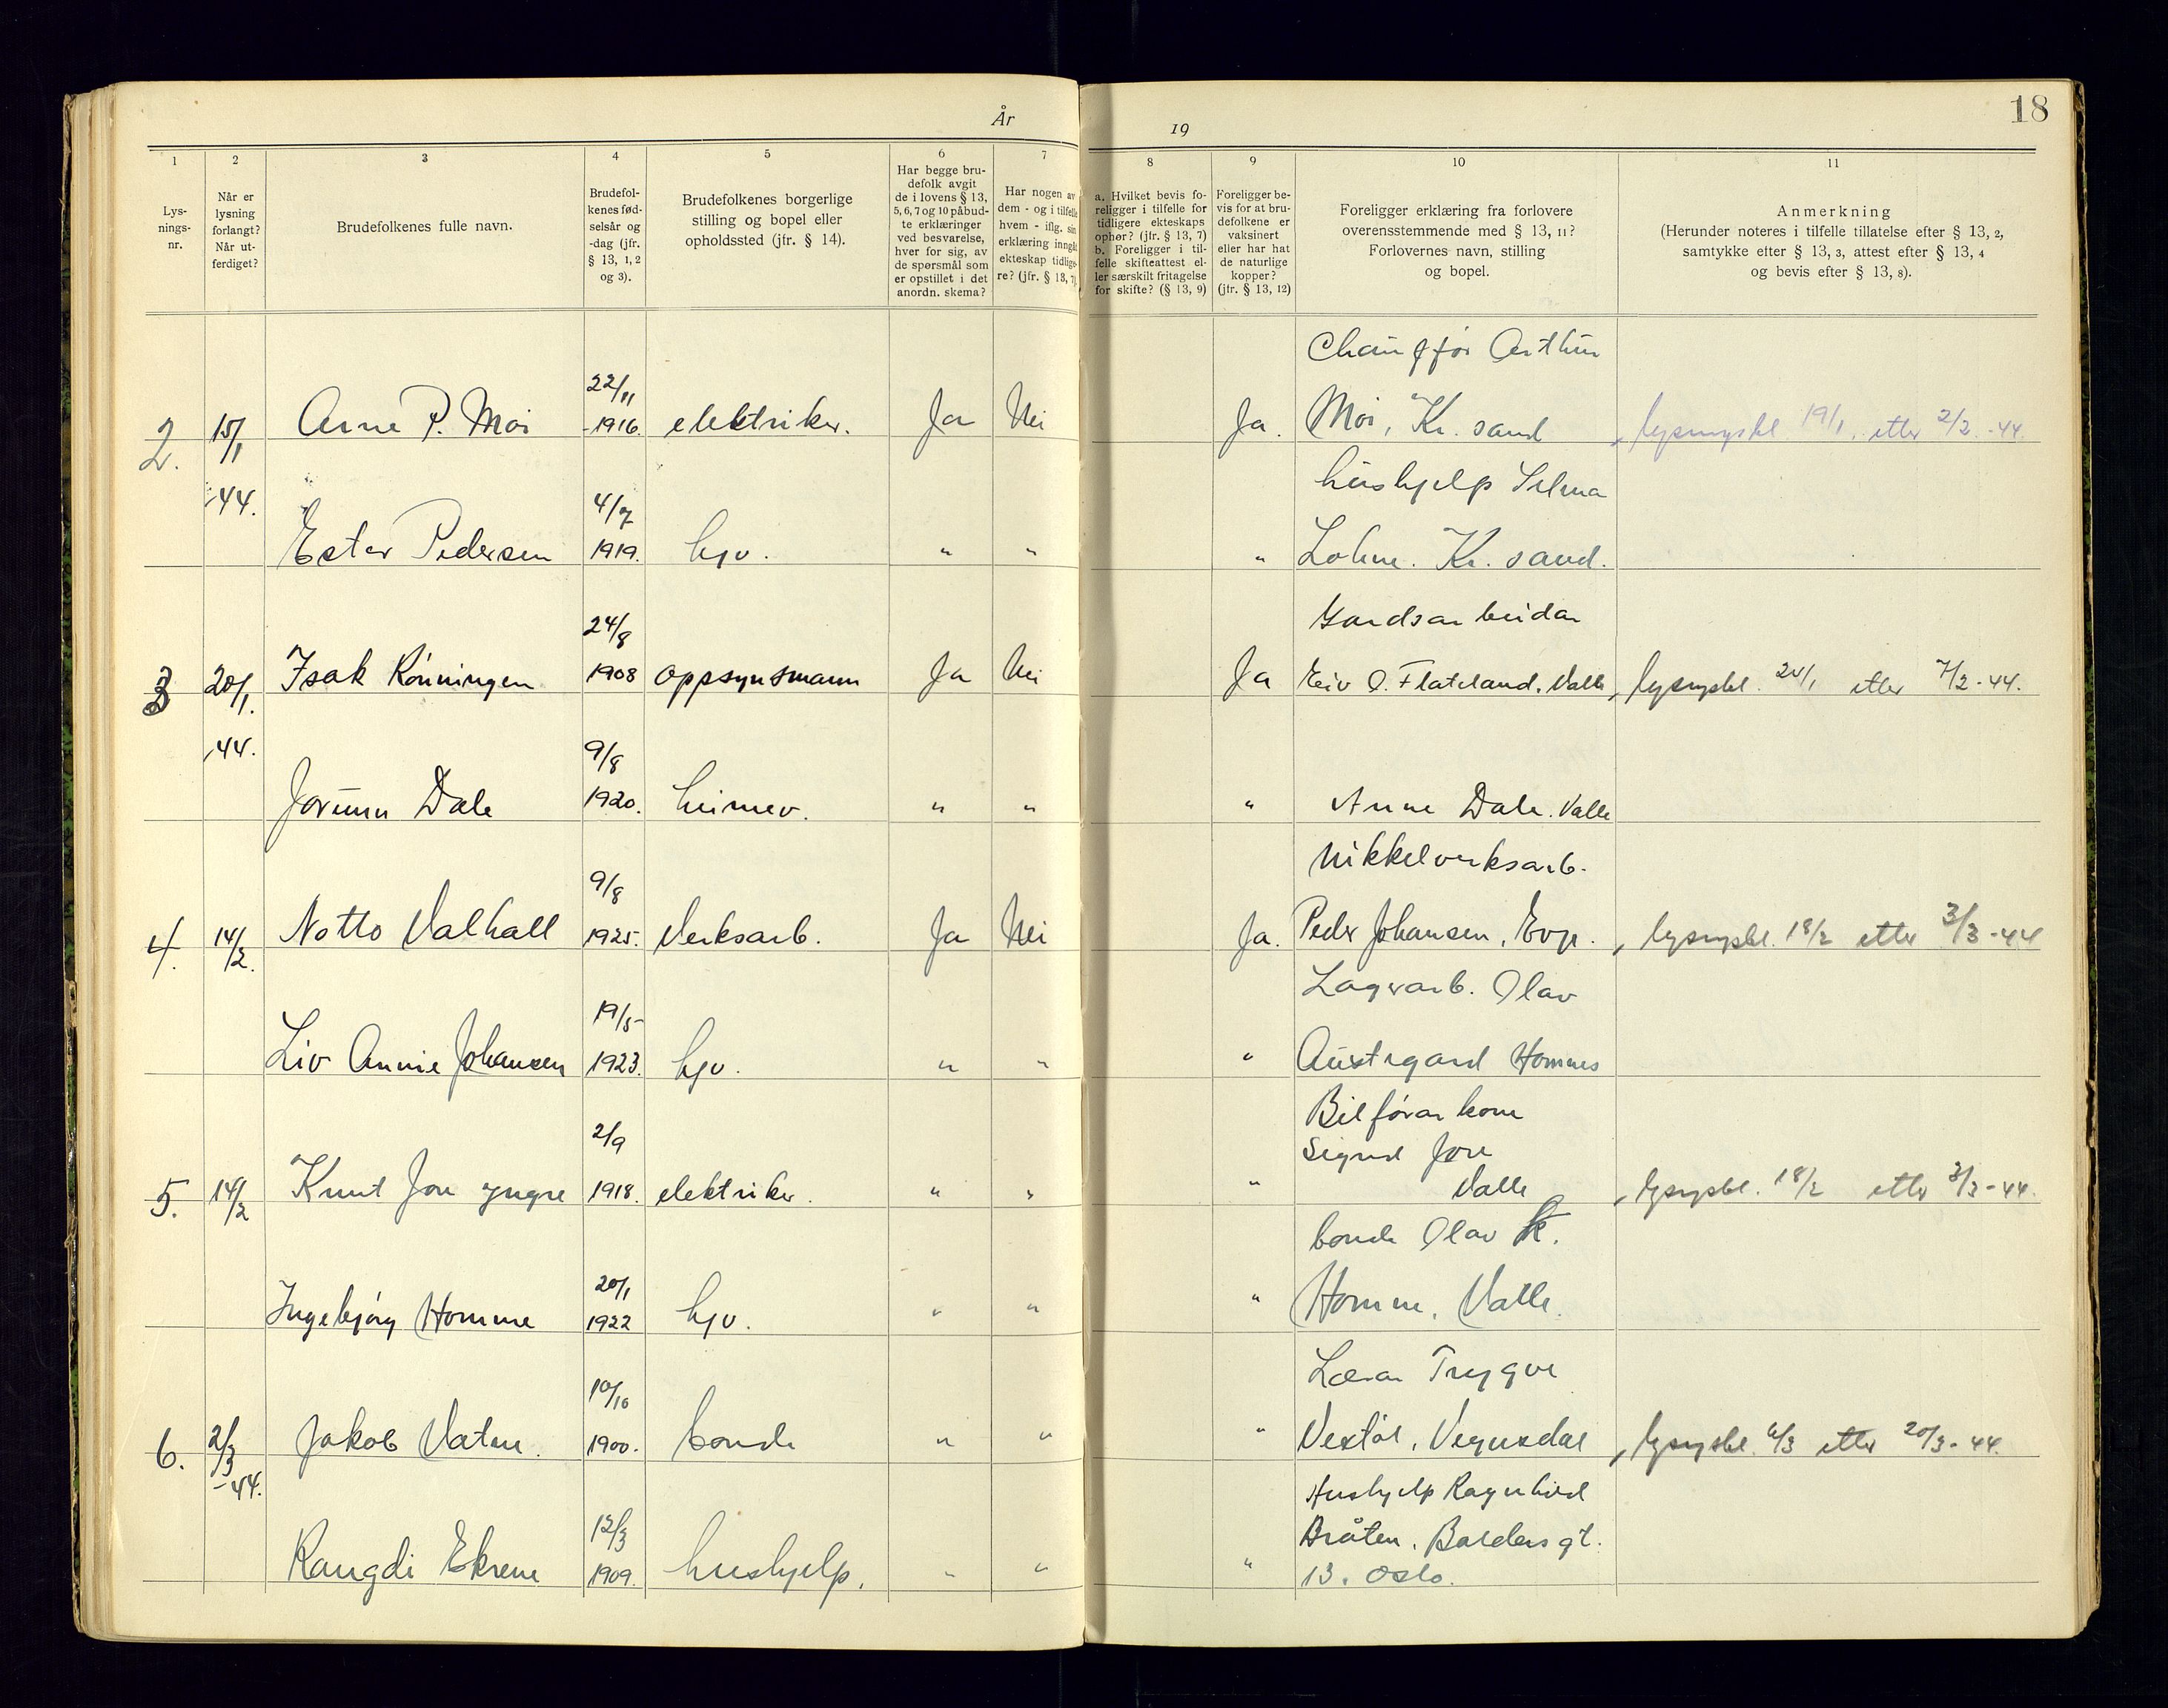 År 19
18
1
2
3
4
5
6
7
8
9
10
11
Lys-
nings-
nr.
Når er
lysning
forlangt?
Når ut-
ferdiget?
Brudefolkenes fulle navn.
Brudefol-
kenes fød-
selsår og
-dag (jfr.
§ 13, 1, 2
og 3).
Brudefolkenes borgerlige
stilling og bopel eller
opholdssted (jfr. § 14).
Har begge bru-
defolk avgit
de i lovens § 13,
5, 6, 7 og 10 påbud-
te erklæringer
ved besvarelse,
hver for sig, av
de spørsmål som
er opstillet i det
anordn. skema?
Har nogen av
dem - og i tilfelle
hvem - iflg. sin
erklæring inngåt
ekteskap tidlige-
re? (jfr. § 13, 7)
a. Hvilket bevis fo-
religger i tilfelle for
tidligere ekteskaps
ophør? (jfr. § 13, 7)
b. Foreligger i til-
felle skifteattest el-
ler særskilt fritagelse
for skifte? (§ 13, 9)
Foreligger be-
vis for at bru-
defolkene er
vaksinert
eller har hat
de naturlige
kopper?
(jfr. § 13, 12)
Foreligger erklæring fra forlovere
overensstemmende med § 13, 11?
Forlovernes navn, stilling
og bopel.
Anmerkning
(Herunder noteres i tilfelle tillatelse efter § 13, 2,
samtykke efter § 13, 3, attest efter § 13, 4
og bevis efter § 13, 8).
Chauffør Arthur
22/11
2. 15/1 Arne P. Moi -1916. elektriker. Ja Nei Ja. Moi, Kr. sand, lysingsbl. 19/1. etter 2/2.-44.
hushjelp Selma
44. 4/7
Ester Pedersen 1919. hjv. " " " Lohne. Kr. sand.
Gardsarbeidar
24/8
3 20/1. Isak Rønningen 1908 oppsynsmann Ja Nei Ja Eiv O. Flateland. Valle, lysingsbl. 24/1 etter 7/2-44.
44. 9/8
Jorunn Dale 1920. heimev. " " " Anne Dale. Valle
Nikkelverksarb.
9/8
4. 14/2. Notto Valhall 1925. Verksarb. Ja Nei Ja. Peder Johansen, Evje., lysingsbl. 18/2 etter 3/3-44
Lagerarb. Olav
19/5-
Liv Annie Johansen 1923. hjv. " " " Austegard Hornnes
Bilførar kone
2/9 Sigrid Jore
5. 14/2 Knut Jore yngre 1918. elektriker. " " " Valle, lysingsbl. 18/2 etter 3/3-44.
bonde Olav K.
20/1
Ingebjørg Homme 1922 hjv. " " " Homme, Valle.
Lærar Trygve
10/10
6. 2/3 Jakob Vatne. 1900. bonde " " " Vestøl, Vegusdal, lysingsbl. 6/3 etter 20/3-44.
-44. Hushjelp Ragnhild
12/3 Bråten, Balders gt.
Rangdi Ekrene 1909. hushjelp. " " " 13. Oslo.